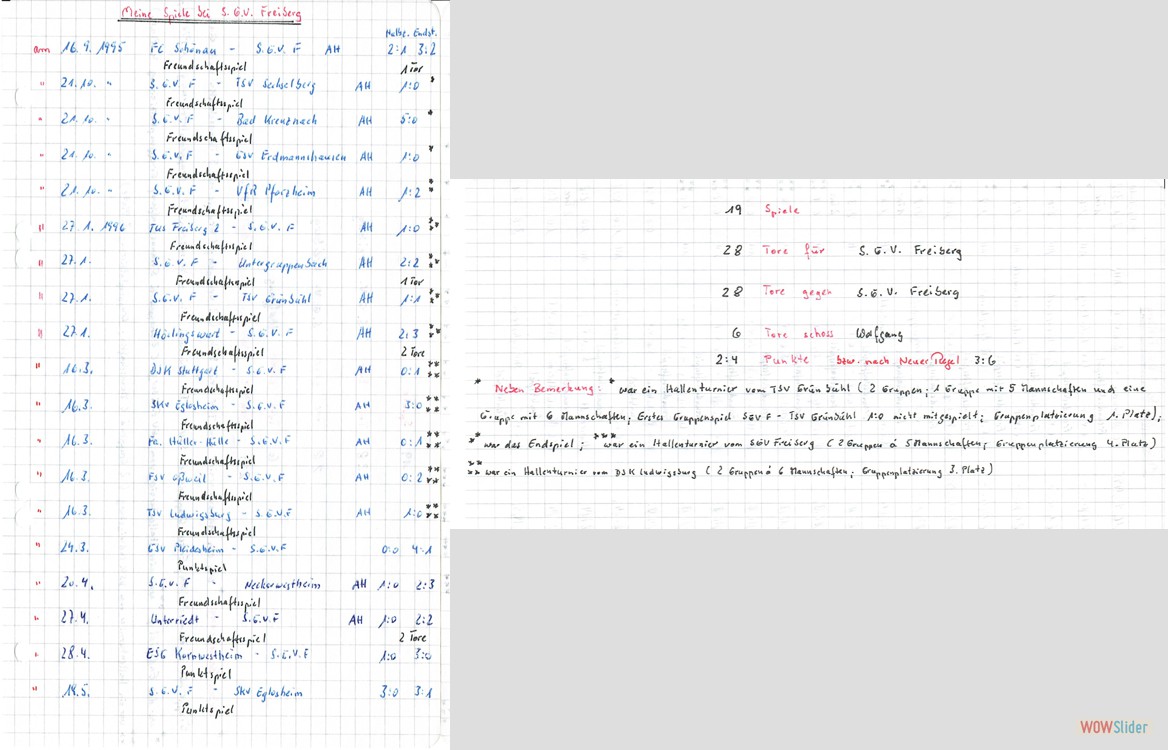 Meine Spiele bei S.G.V. Freiberg
Halbz. Endst.
am 16.9.1995 FC Schönau - S.G.V. F AH 2:1 3:2
Freundschaftsspiel 1 Tor
" 21.10. " S.G.V. F - TSV Sechselberg AH 1:0 *
Freundschaftsspiel
" 21.10. " S.G.V. F - Bad Kreuznach AH 5:0 *
Freundschaftsspiel
" 21.10. " S.G.V. F - GSV Erdmannshausen AH 1:0 *
Freundschaftsspiel
" 21.10. " S.G.V. F - VfR Pforzheim AH 1:2 **
Freundschaftsspiel
" 27.1.1996 Tus Freiberg 2 - S.G.V. F AH 1:0 ***
Freundschaftsspiel
" 27.1. S.G.V. F - Untergruppenbach AH 2:2 ***
Freundschaftsspiel 1 Tor
" 27.1. S.G.V. F - TSV Grünbühl AH 1:1 ***
Freundschaftsspiel
" 27.1. - S.G.V. F AH 2:3 ***
Freundschaftsspiel 2 Tore
" 16.3. DJK Stuttgart - S.G.V. F AH 0:1 ****
Freundschaftsspiel
" 16.3. SKV Eglosheim - S.G.V. F AH 3:0 ****
Freundschaftsspiel
" 16.3. Fa. Hüller-Hille - S.G.V. F AH 0:1 ****
Freundschaftsspiel
" 16.3. FSV Oßweil - S.G.V. F AH 0:2 ****
Freundschaftsspiel
" 16.3. TSV Ludwigsburg - S.G.V. F AH 1:0 ****
Freundschaftsspiel
" 24.3. GSV Pleidesheim - S.G.V. F 0:0 4:1
Punktspiel
" 20.4. S.G.V. F - Neckarwestheim AH 1:0 2:3
Freundschaftsspiel
" 27.4. Unterriedt - S.G.V. F AH 1:0 2:2
Freundschaftsspiel 2 Tore
" 28.4. ESG Kornwestheim - S.G.V. F 1:0 3:0
Punktspiel
" S.G.V. F - SKV Eglosheim 3:0 3:1
Punktspiel
19 Spiele
28 Tore für S.G.V. Freiberg
28 Tore gegen S.G.V. Freiberg
6 Tore schoss Wolfgang
2:4 Punkte bzw. nach Neuer Regel 3:6
* Neben Bemerkung: * war ein Hallenturnier vom TSV Grünbühl (2 Gruppen; 1 Gruppe mit 5 Mannschaften und eine
Gruppe mit 6 Mannschaften; Erstes Gruppenspiel SGV F - TSV Grünbühl 1:0 nicht mitgespielt; Gruppenplatzierung 1. Platz);
** war das Endspiel; *** war ein Hallenturnier vom SGV Freiberg (2 Gruppen á 5 Mannschaften; Gruppenplatzierung 4. Platz)
**** war ein Hallenturnier vom DJK Ludwigsburg (2 Gruppen á 6 Mannschaften; Gruppenplatzierung 3. Platz)
WOWSlider